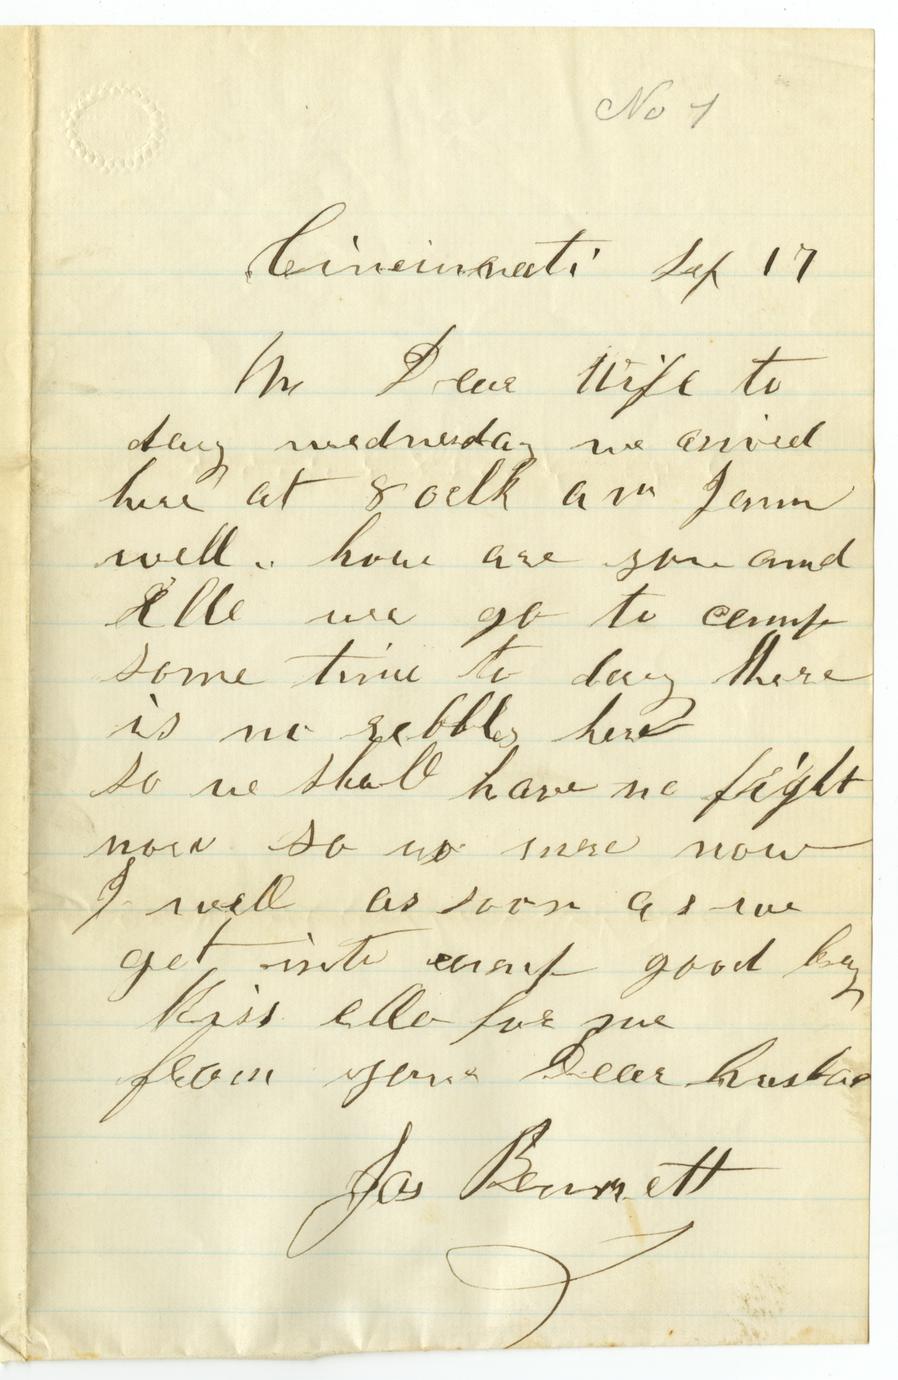 No 1
Cincinnati Sep 17
My Dear Wife to
day wednesday we arived
here at 8 oclk a m I am
well . how are you and
Elle we go to camp
some time to day there
is no rebbls here
so we shall have no fight
now so no more now
I well as soon as we
get into camp good by
Kiss ella for me
from your Dear husban
Jas Bennett